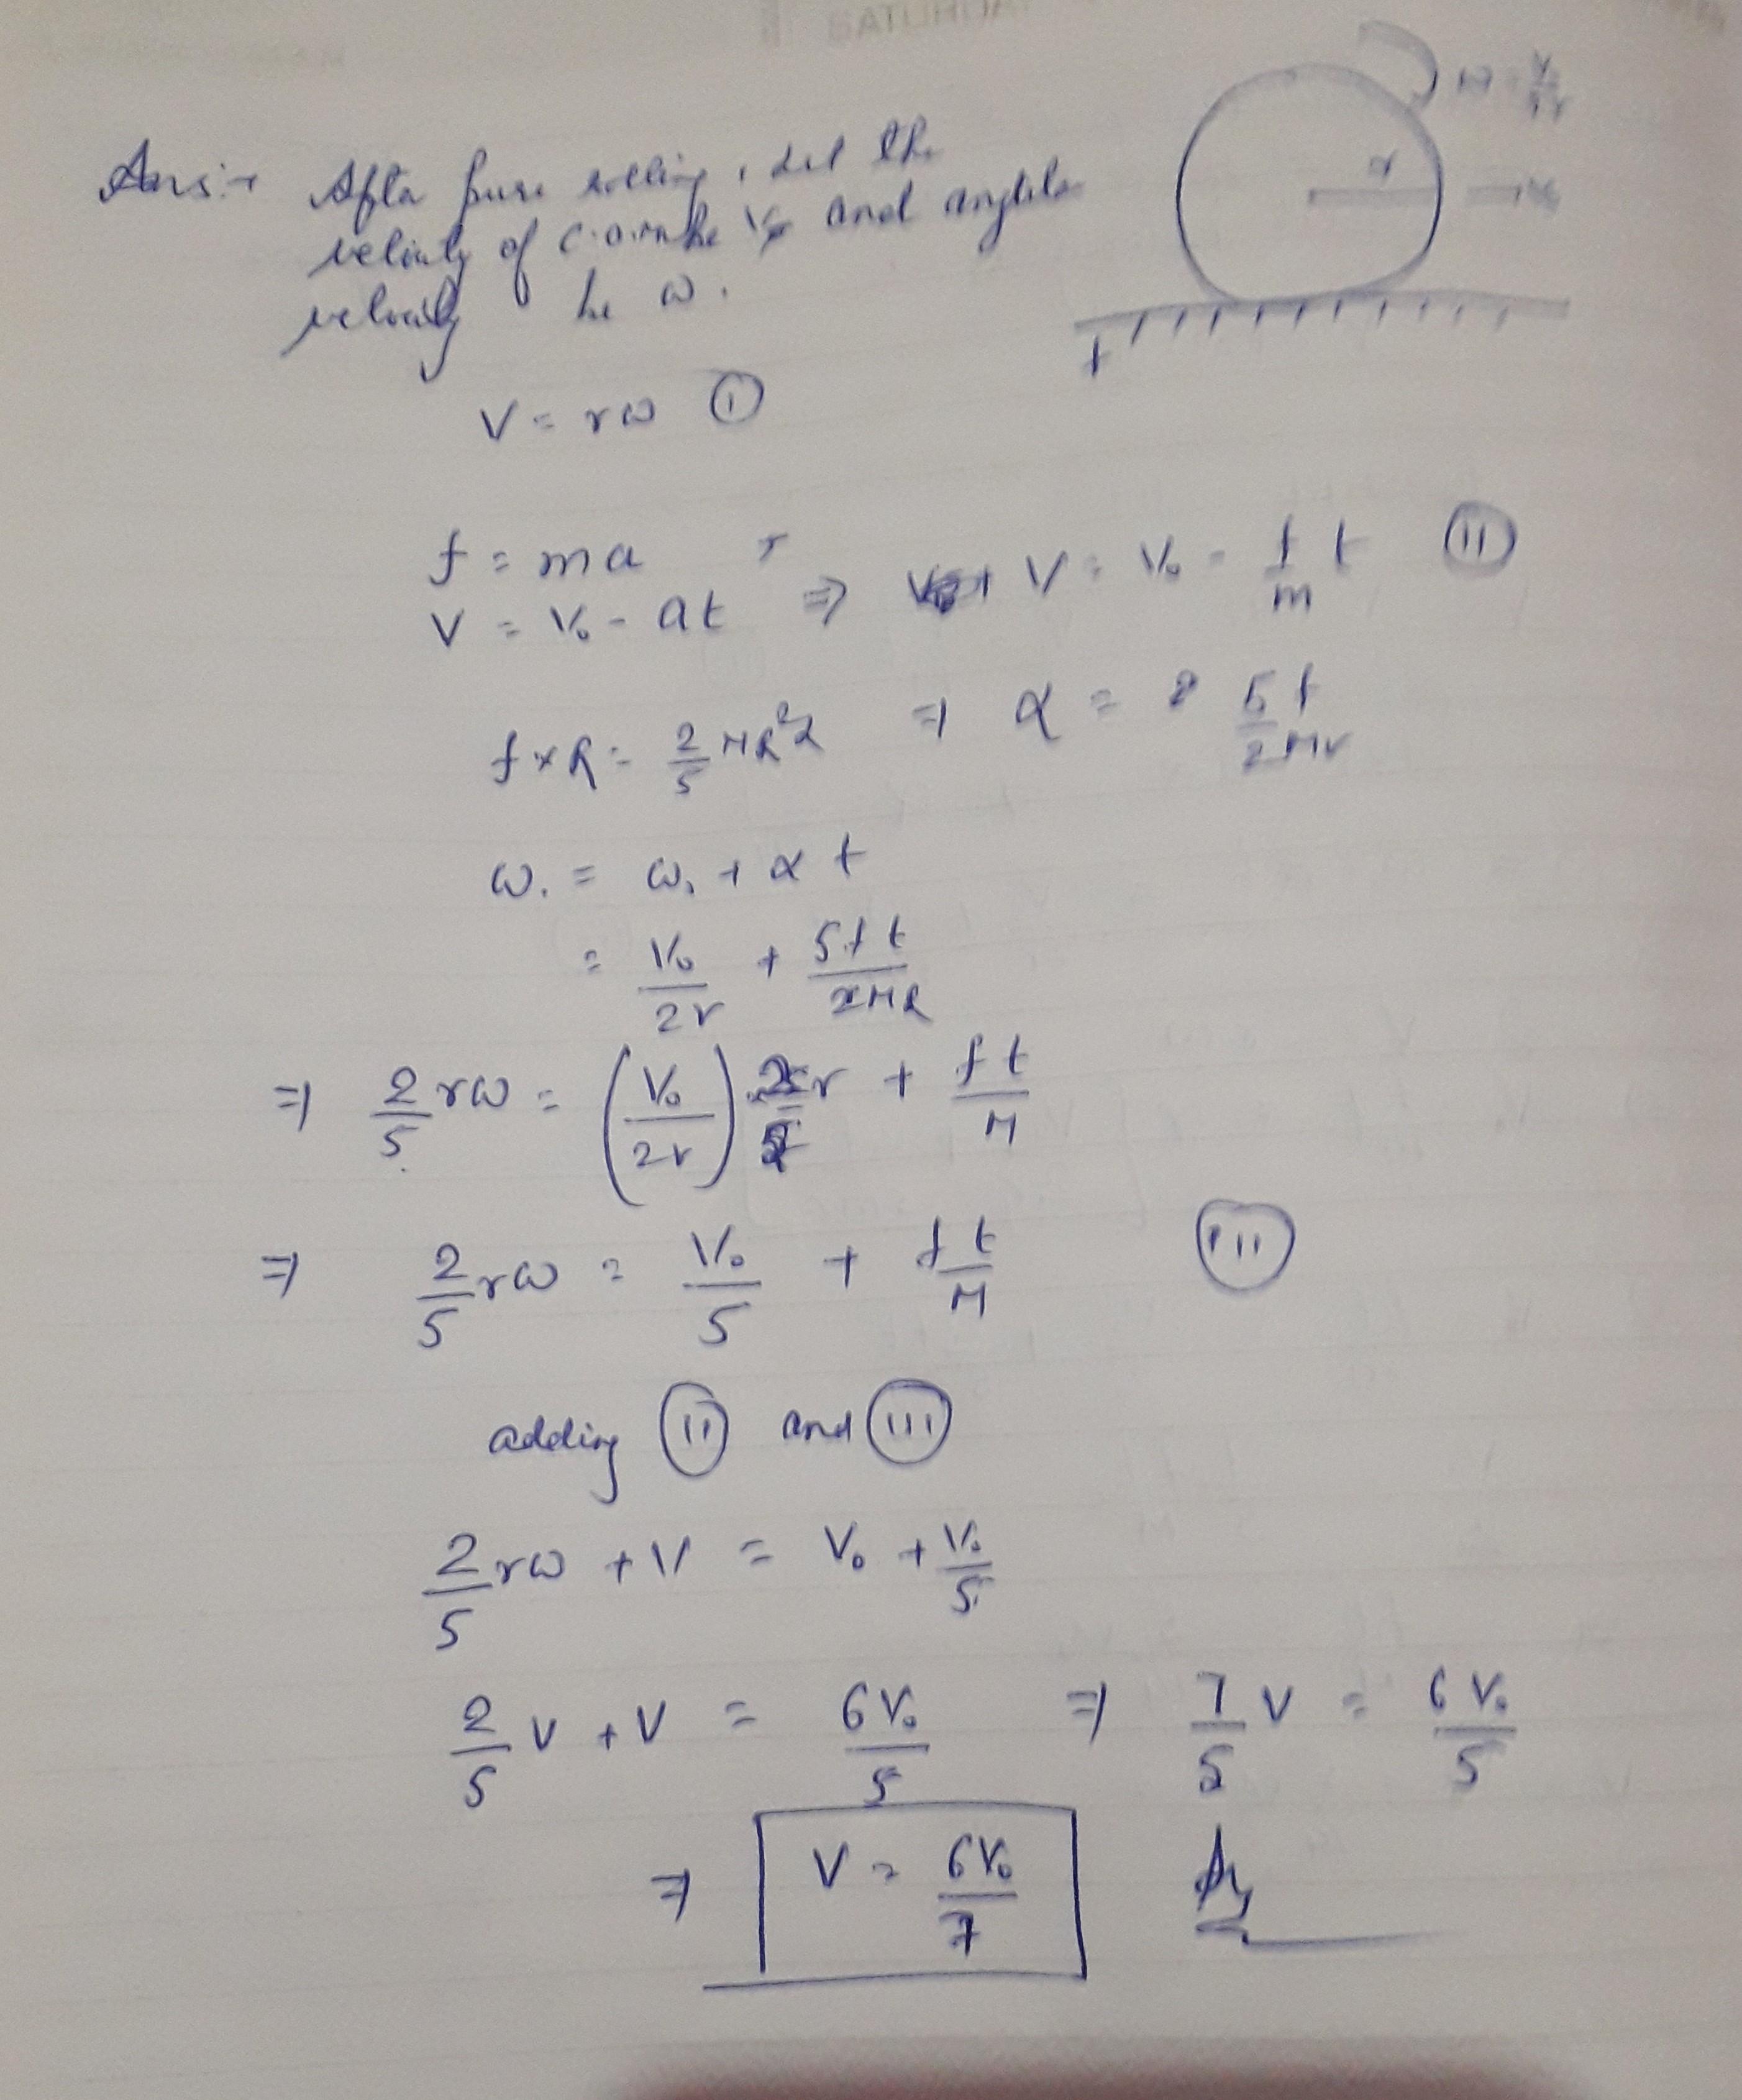 Ans:→ After pure rolling, let the
velocity of c.o.m be V and angular
velocity be ω.
r
V = rω (i)
f = ma
V = V₀ - at ⇒ V = V₀ - f/m t (ii)
f × R = 2/5 MR²α ⇒ α = 5f/2Mr
ω. = ω. + αt
= V₀/2r + 5ft/2MR
⇒ 2/5 rω = (V₀/2r) 2/5 r + ft/M
⇒ 2/5 rω = V₀/5 + ft/M (iii)
adding (ii) and (iii)
2/5 rω + V = V₀ + V₀/5
2/5 V + V = 6V₀/5 ⇒ 7/5 V = 6V₀/5
⇒ V = 6V₀/7 Ans